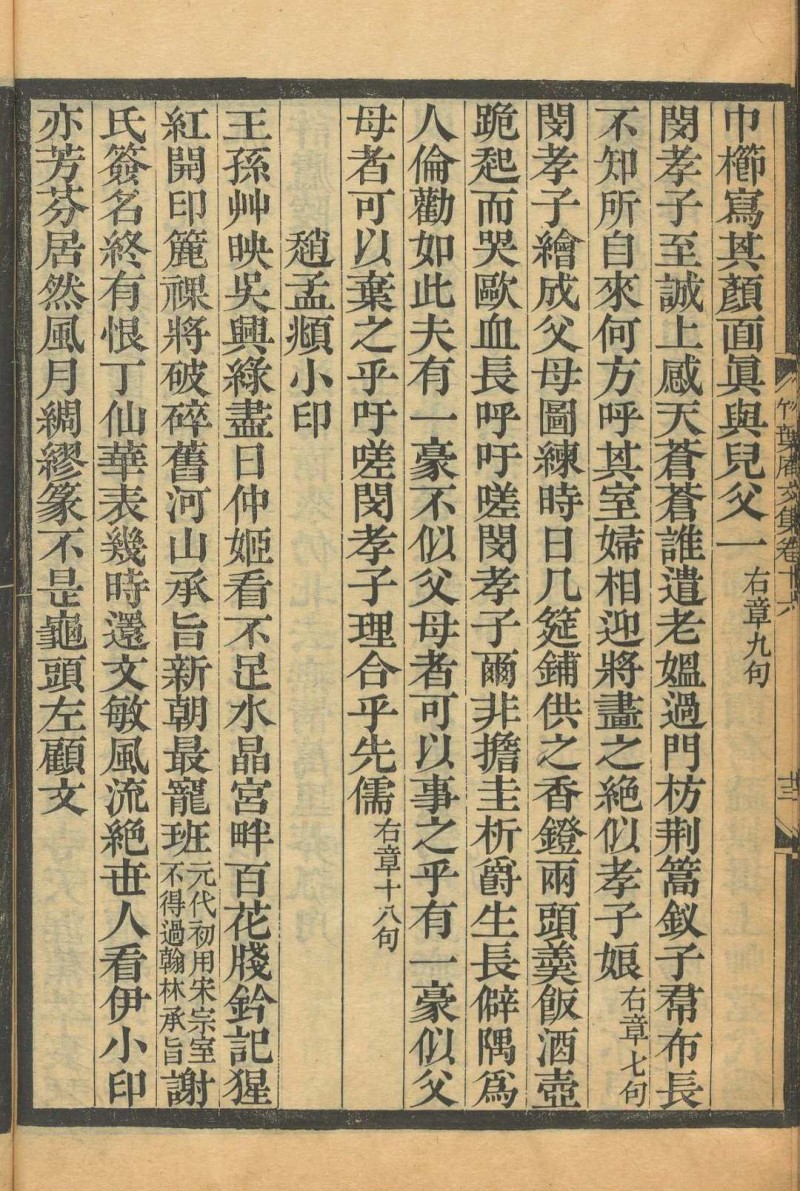 竹葉庵文集卷十六
十三
巾櫛寫其顏面眞與兒父一右章九句
閔孝子至誠上感天蒼蒼誰遣老媼過門枋荆篙釵子帬布長
不知所自來何方呼其室婦相迎將畫之絶似孝子娘右章七句
閔孝子繪成父母圖練時日几筵鋪供之香鐙兩頭羹飯酒壺
跪起而哭歐血長呼吁嗟閔孝子爾非擔圭析爵生長僻隅爲
人倫勸如此夫有一豪不似父母者可以事之乎有一豪似父
母者可以棄之乎吁嗟閔孝子理合乎先儒右章十八句
趙孟頫小印
王孫艸映吳興綠盡日仲姬看不足水晶宮畔百花牋鈐記猩
紅開印簏祼將破碎舊河山承旨新朝最寵班元代初用宋宗室不得過翰林承旨謝
氏簽名終有恨丁仙華表幾時還文敏風流絶世人看伊小印
亦芳芬居然風月綢繆篆不是龜頭左顧文